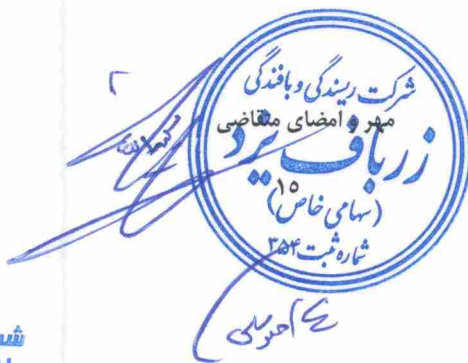 شرکت ریسندگی و بافندگی
مهر و امضای متقاضی
زرباف یزد
۱۵
(سهامی خاص)
شماره ثبت ۳۵۴